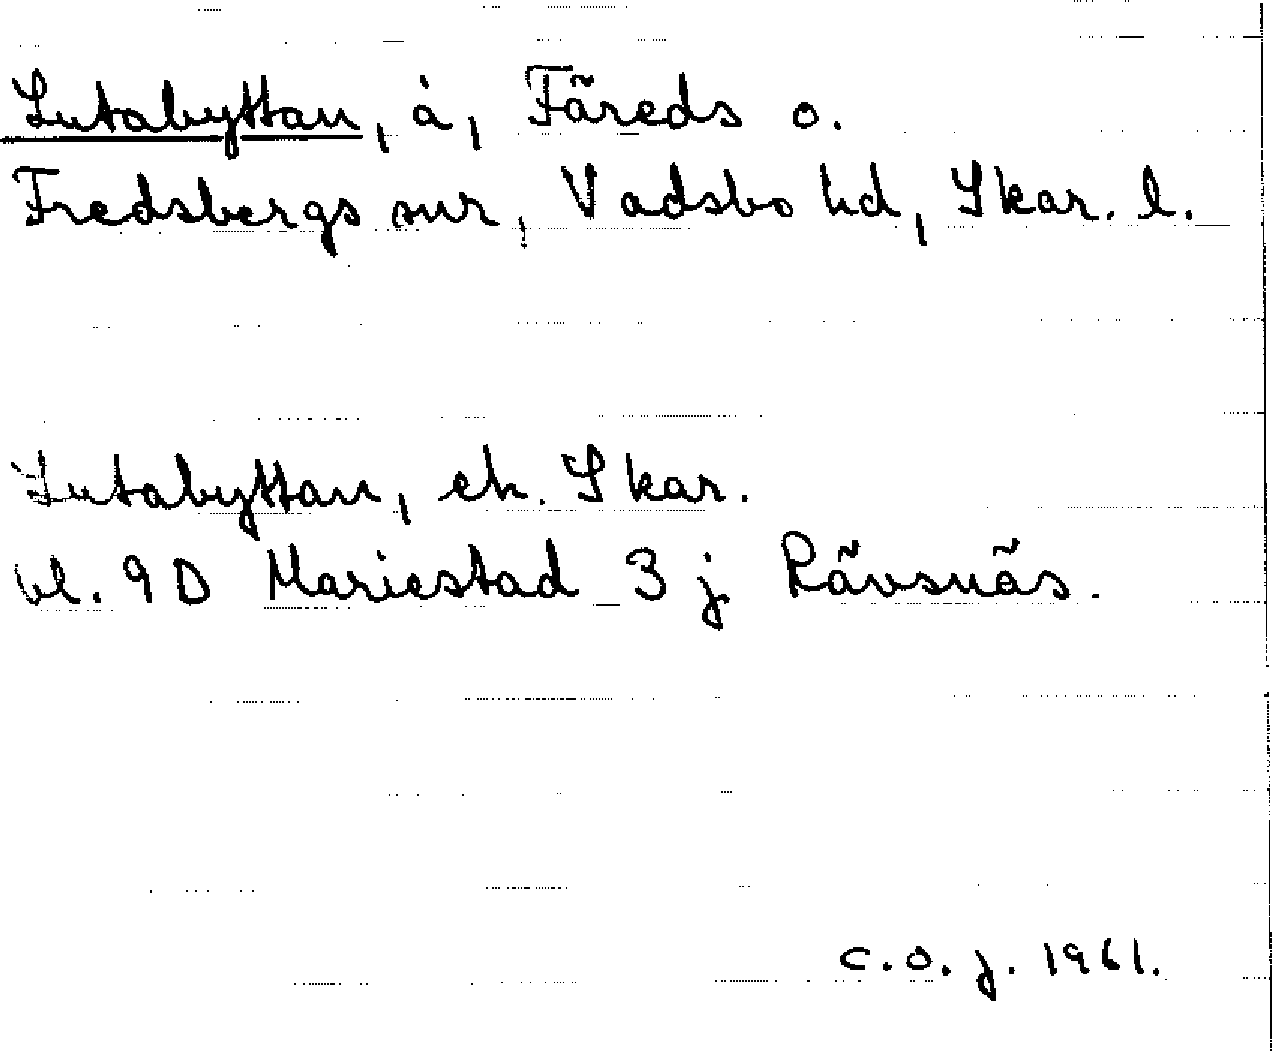 Lutabyttan, å, Färeds o.
Fredsbergs snr, Vadsbo hd, Skar. l.
Lutabyttan, ek. Skar.
bl. 9D Mariestad 3 j Rävsnäs.
C.O.J. 1961.